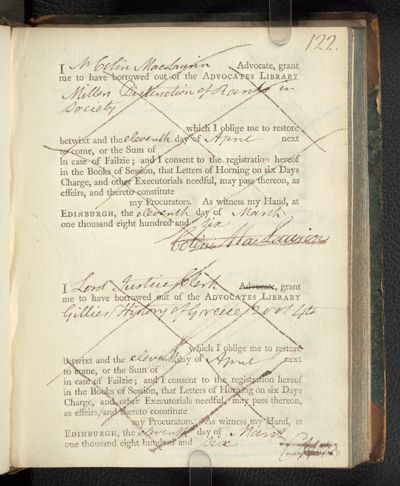 122.
I Mr Colin MacLaurin Advocate, grant
me to have borrowed out of the ADVOCATES LIBRARY
Millers Distinction of Ranks in
Society
which I oblige me to restore
betwixt and the eleventh day of April next
to come, or the Sum of
in case of Failzie; and I consent to the registration hereof
in the Books of Session, that Letters of Horning on six Days
Charge, and other Executorials needful, may pass thereon, as
effeirs, and thereto constitute
my Procurators. As witness my Hand, at
EDINBURGH, the eleventh day of March
one thousand eight hundred and six
Colin MacLaurin
I Lord Justice Clerk Advocate, grant
me to have borrowed out of the ADVOCATES LIBRARY
Gillies History of Greece 2 vol 4to
which I oblige me to restore
betwixt and the eleventh day of April next
to come, or the Sum of
in case of Failzie; and I consent to the registration hereof
in the Books of Session, that Letters of Horning on six Days
Charge, and other Executorials needful, may pass thereon,
as effeirs, and thereto constitute
my Procurators. As witness my Hand, at
EDINBURGH, the eleventh day of March
one thousand eight hundred and six